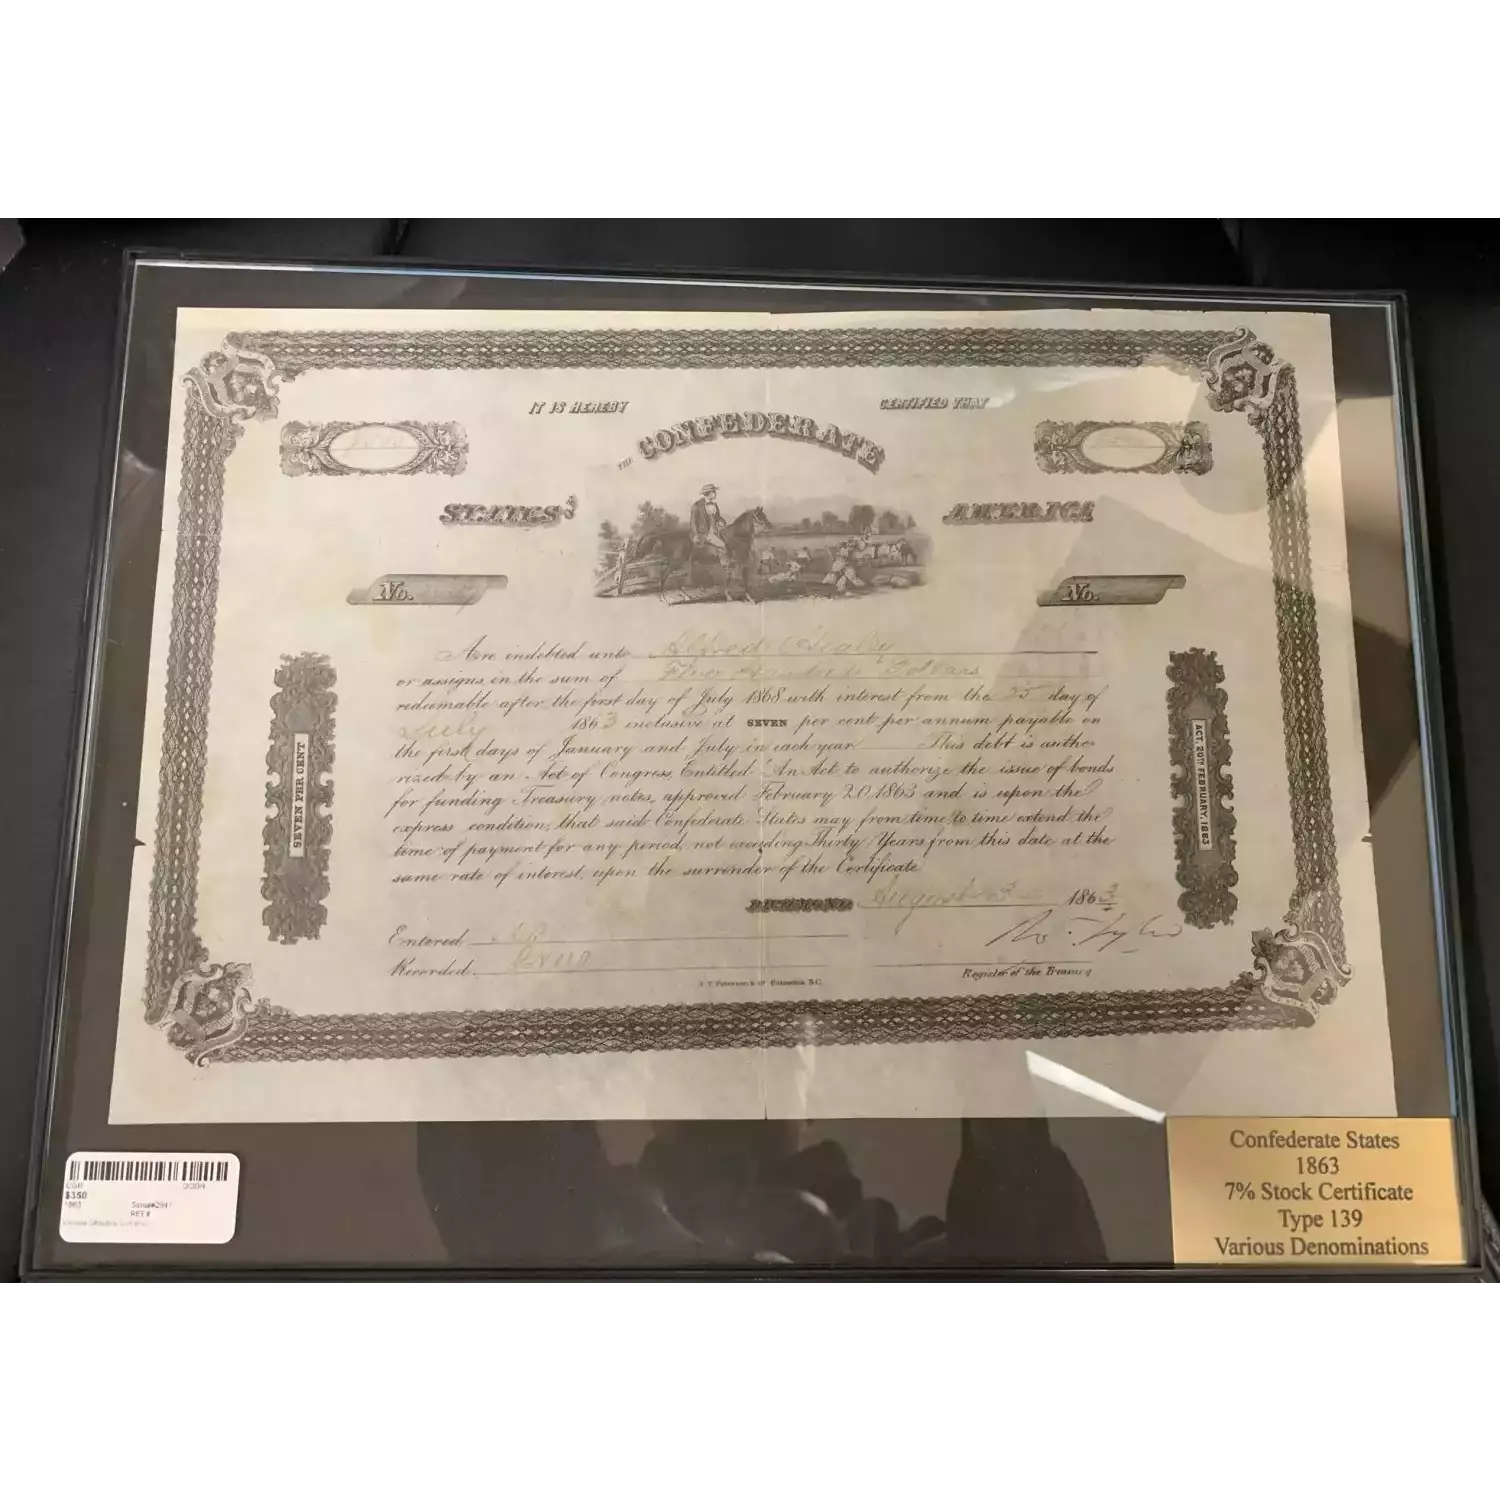 IT IS HEREBY CERTIFIED THAT
THE CONFEDERATE
STATES OF AMERICA
No. No.
Are indebted unto Alfred
or assigns, in the sum of Hundred Dollars
redeemable after the first day of July 1868 with interest from the 25 day of
July 1863 inclusive at SEVEN per cent per annum payable on
the first days of January and July in each year This debt is autho-
rized by an Act of Congress, Entitled "An Act to authorize the issue of bonds
for funding Treasury notes, approved February 20, 1863 and is upon the
express condition, that said Confederate States may from time to time extend the
time of payment for any period not exceeding Thirty Years from this date at the
same rate of interest, upon the surrender of the Certificate
RICHMOND August 3 1863
Entered
Recorded
Ro. Tyler
Register of the Treasury
Columbia S.C.
SEVEN PER CENT
ACT, 20TH FEBRUARY, 1863
$350
1863
REF#
Confederate States
1863
7% Stock Certificate
Type 139
Various Denominations